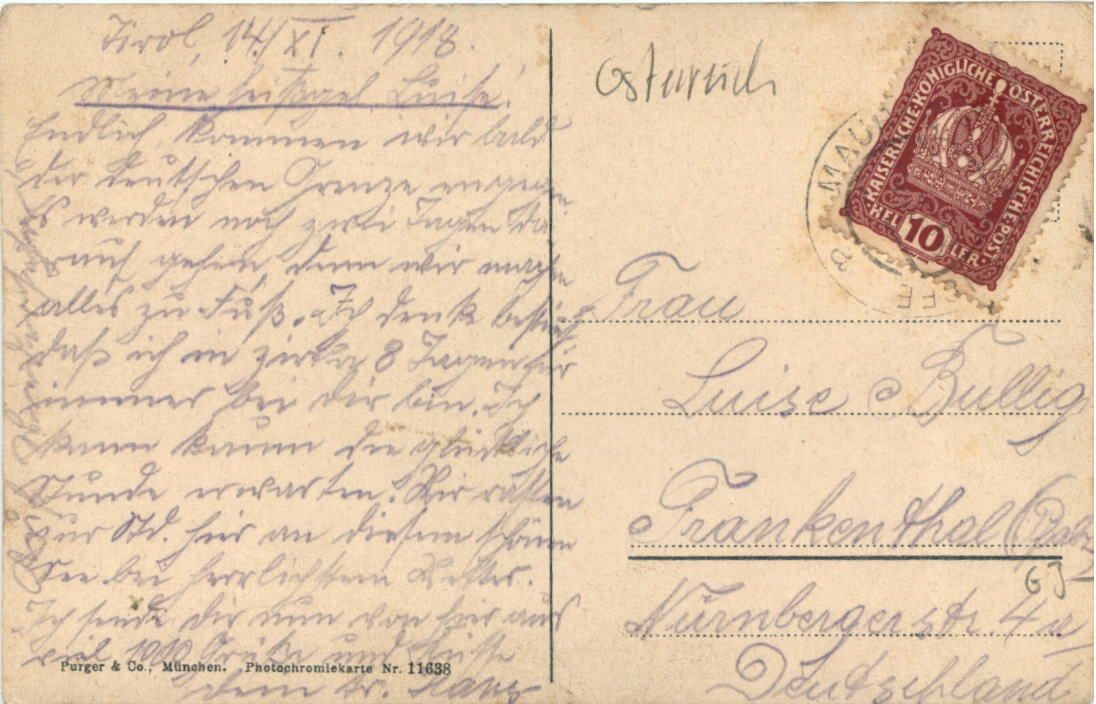 Tirol, 14./XI. 1918.
Meine heißgel. Luise!
Endlich kommen wir bald
der deutschen Grenze entgegen
Es werden noch zwei Tagen da
rauf gehen, denn wir machen
alles zu Fuß. Ich denk bestimmt
daß ich in zirka 8 Tagen für
immer bei dir bin. Ich
kann kaum die glückliche
Stunde erwarten. Wir rasten
zur Std. hier an diesem schönen
See bei herrlichstem Wetter.
Ich sende dir nun von hier aus
viel 1000 Grüße und Küsse
dein tr.
Purger & Co., München. Photochromiekarte Nr. 11638
Österreich
KAISERLICHE KÖNIGLICHE ÖSTERREICHISCHE POST
HEL 10 LER
MAU
SEE
Frau
Luise Bullig
Frankenthal (Pfalz)
GJ
Nürnbergerstr. 4a
Deutschland